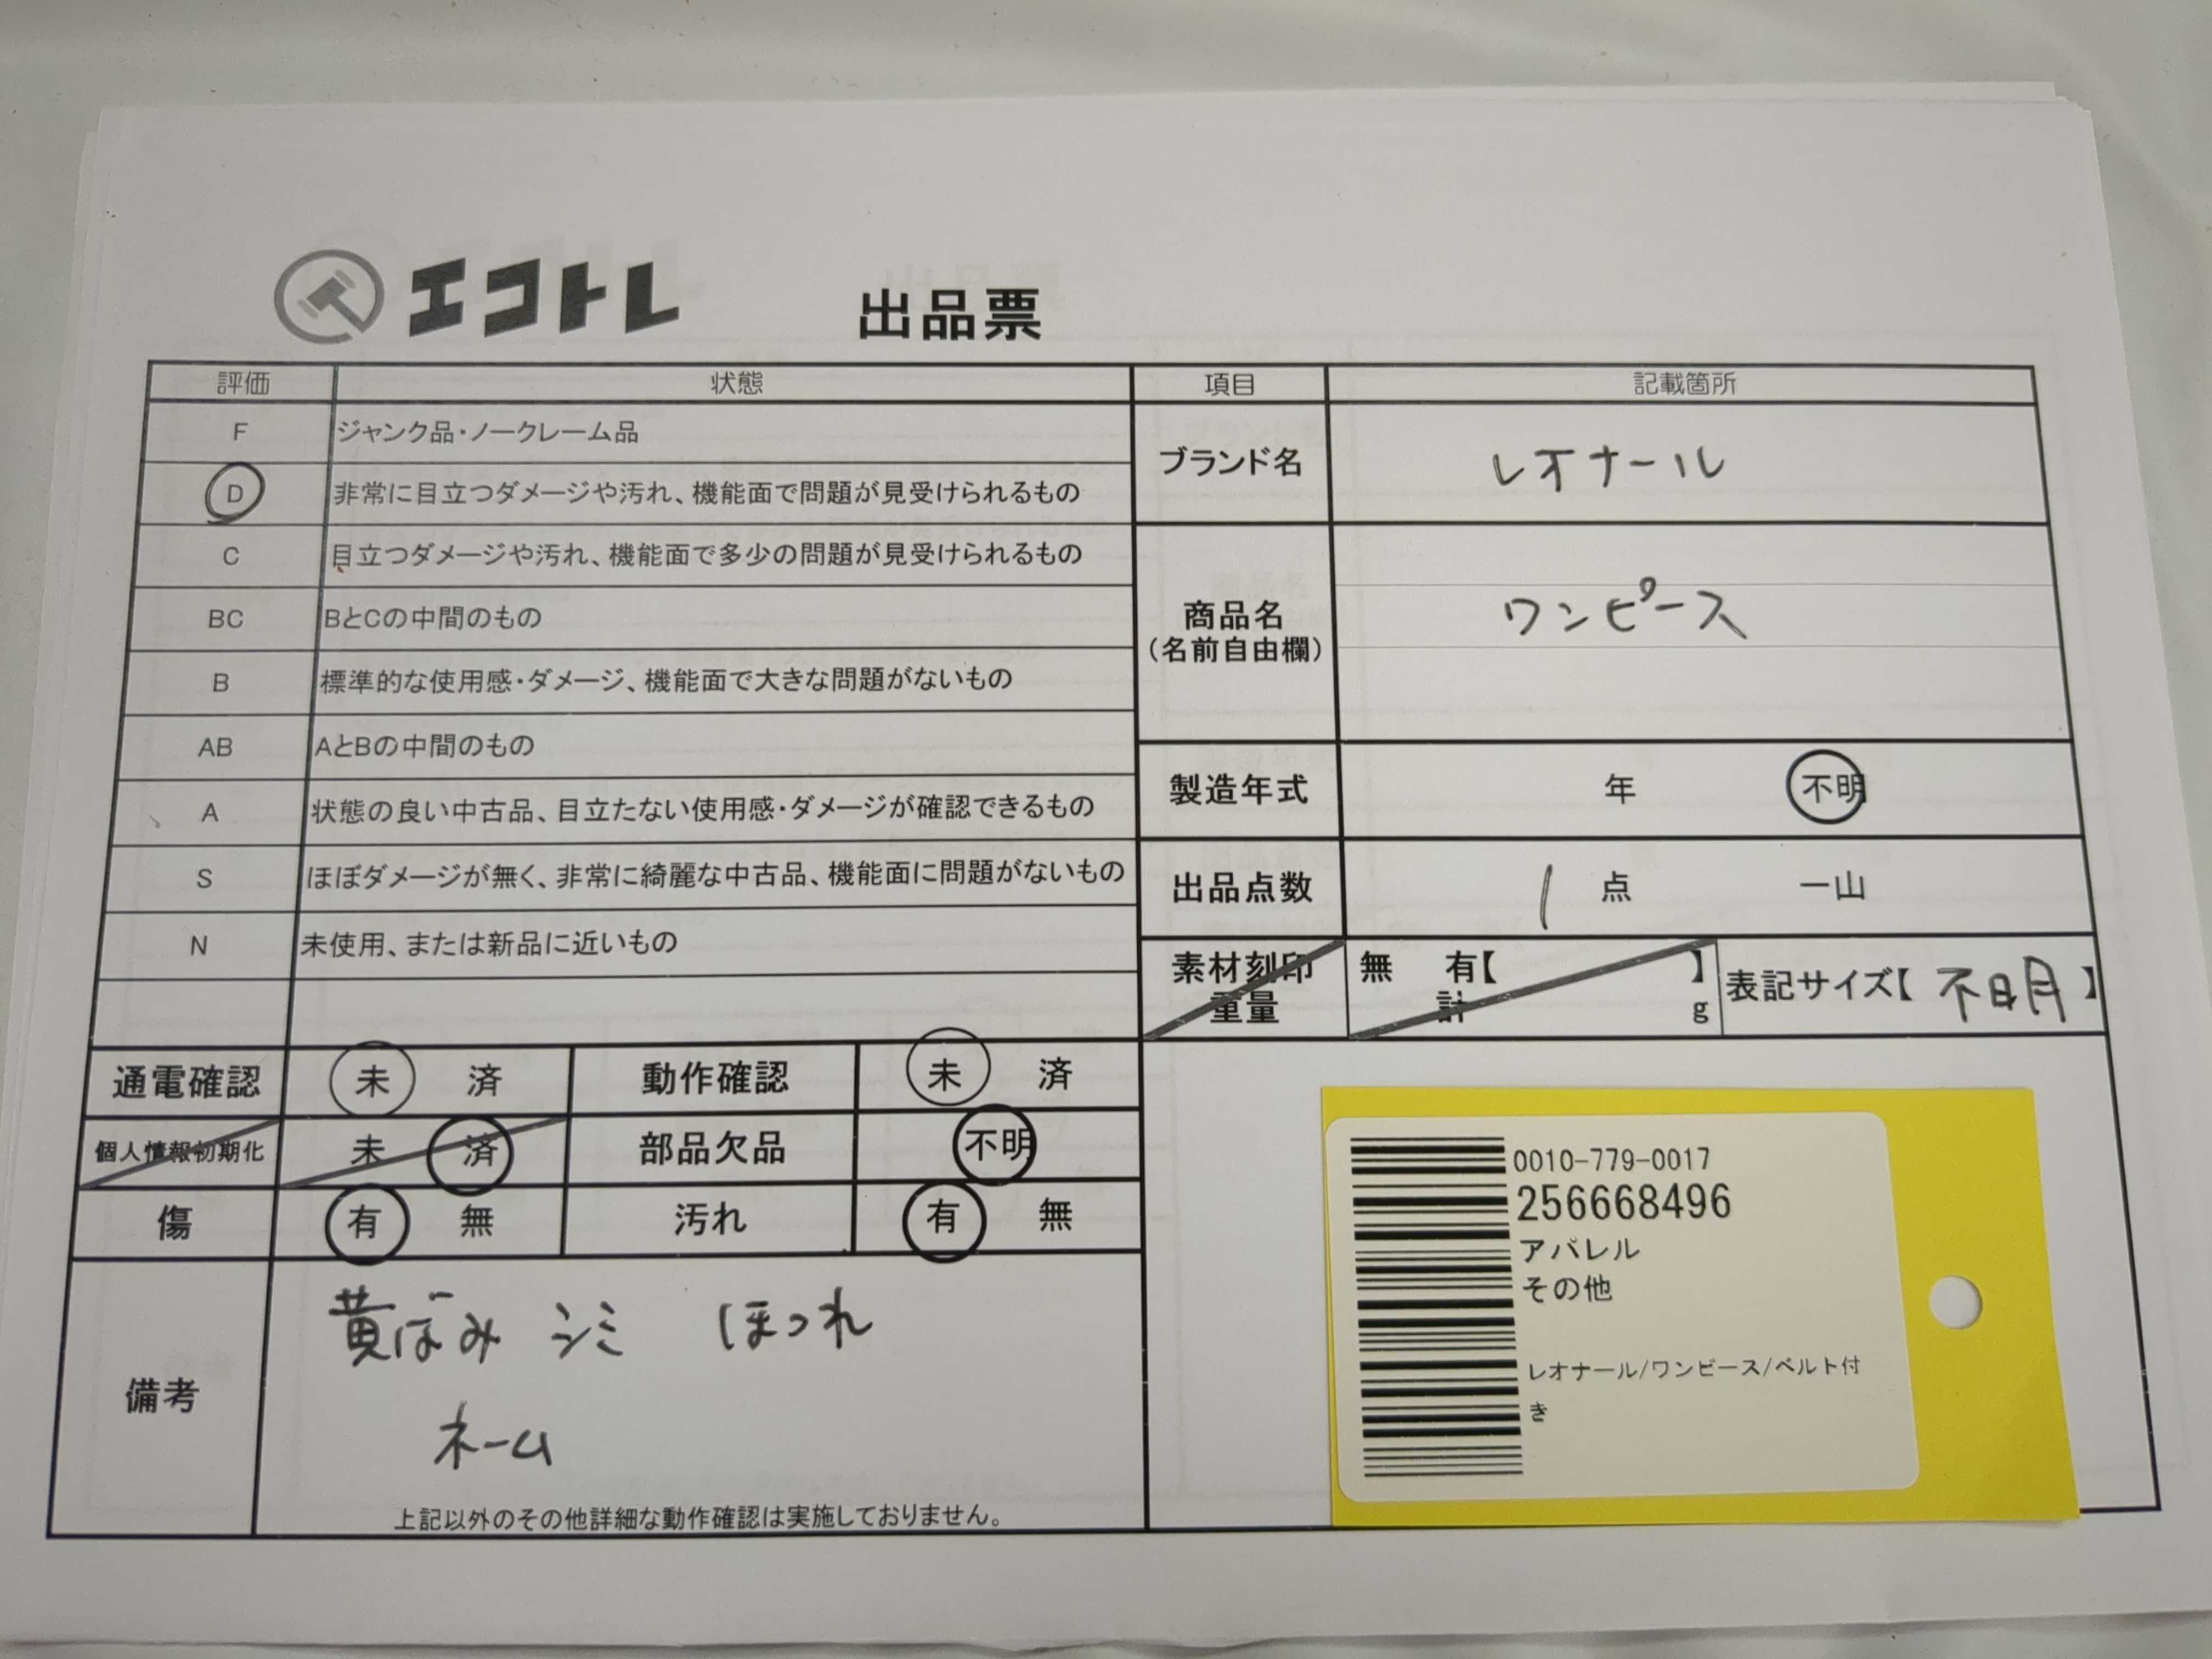 エコトレ 出品票
評価 状態 項目 記載箇所
F ジャンク品・ノークレーム品
D 非常に目立つダメージや汚れ、機能面で問題が見受けられるもの
ブランド名 レオナール
C 目立つダメージや汚れ、機能面で多少の問題が見受けられるもの
BC BとCの中間のもの
商品名 ワンピース
(名前自由欄)
B 標準的な使用感・ダメージ、機能面で大きな問題がないもの
AB AとBの中間のもの
製造年式 年 不明
A 状態の良い中古品、目立たない使用感・ダメージが確認できるもの
S ほぼダメージが無く、非常に綺麗な中古品、機能面に問題がないもの
出品点数 1 点 一山
N 未使用、または新品に近いもの
素材刻印 無 有【 】
重量 計 g
表記サイズ【 不明 】
通電確認 未 済 動作確認 未 済
個人情報初期化 未 済 部品欠品 不明
傷 有 無 汚れ 有 無
備考
黄ばみ シミ ほつれ
ネーム
上記以外のその他詳細な動作確認は実施しておりません。
0010-779-0017
256668496
アパレル
その他
レオナール/ワンピース/ベルト付
き